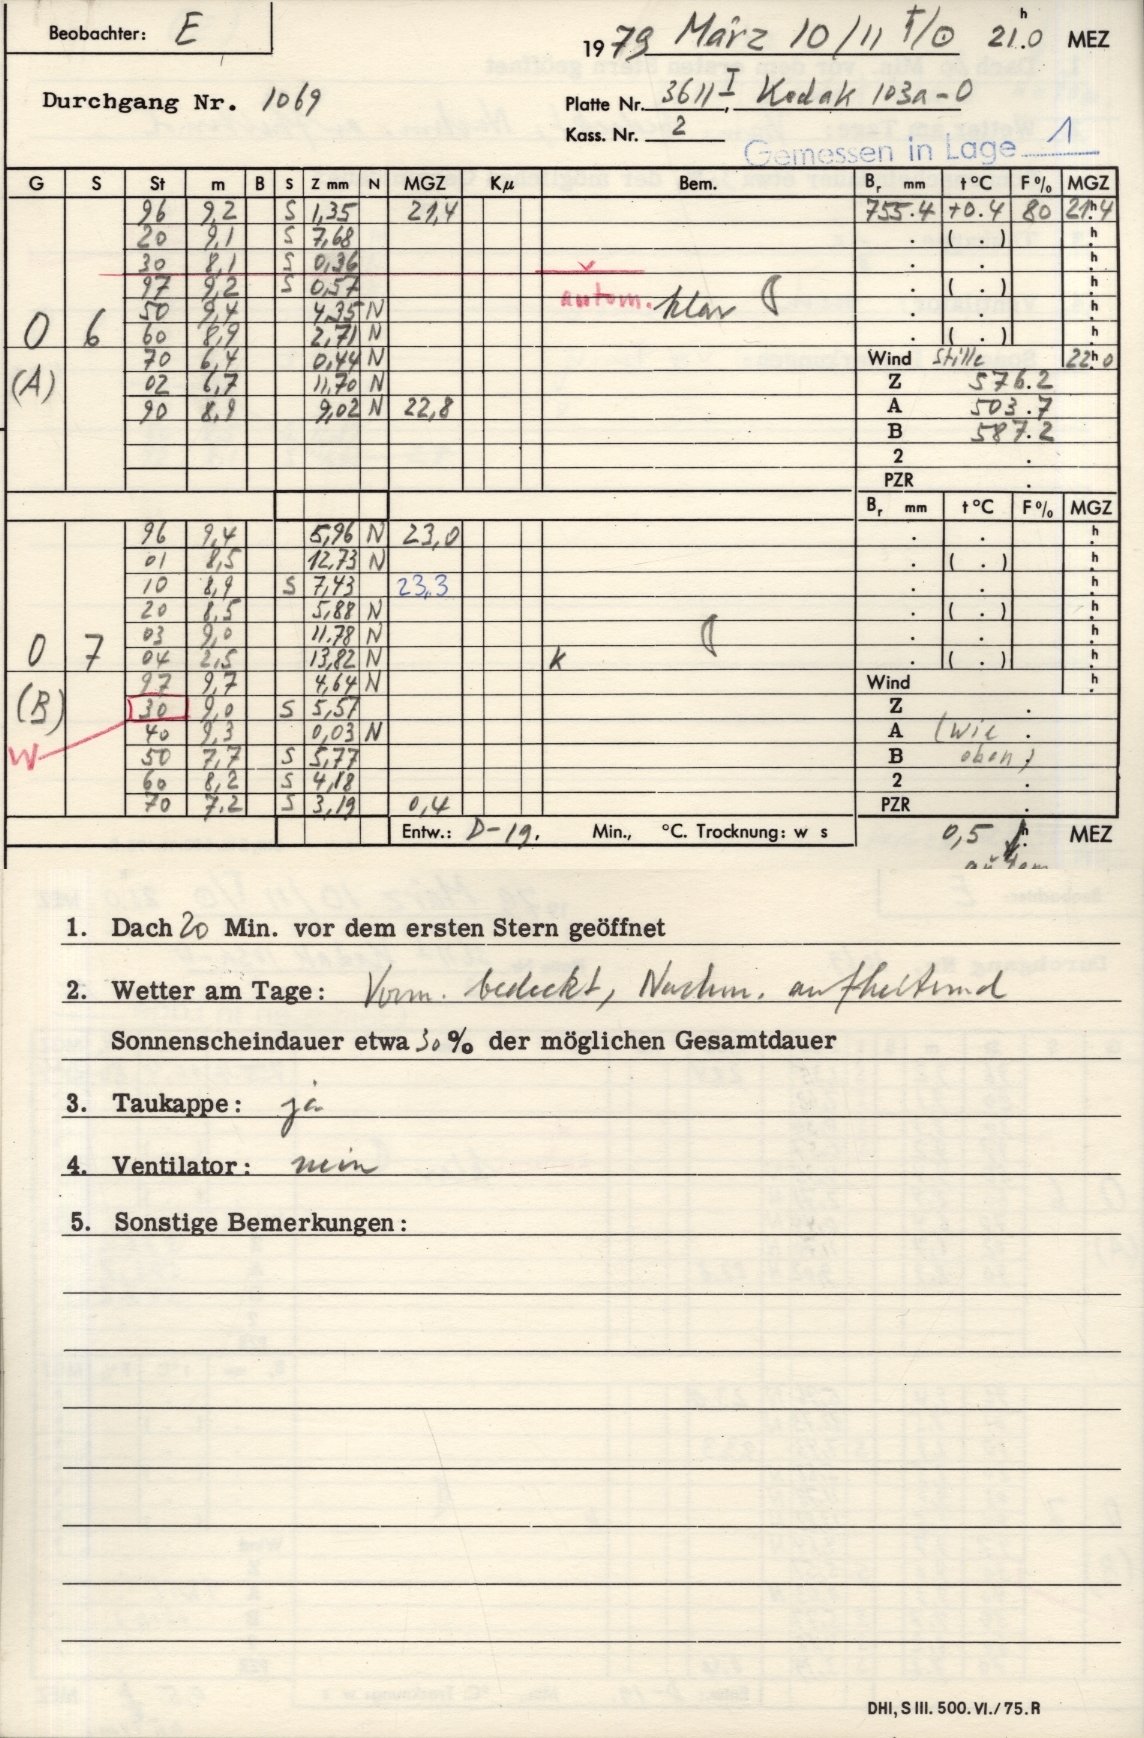 Beobachter: E
1979 März 10/11 ♄/☉ 21ʰ.0 MEZ
Durchgang Nr. 1069
Platte Nr. 3611 I, Kodak 103a-O
Kass. Nr. 2
Gemessen in Lage 1
G S St m B S Z mm N MGZ Kμ Bem. Bᵣ mm t°C F% MGZ
96 9,2 S 1,35 21,4 755.4 +0.4 80 21ʰ.4
20 9,1 S 7,68 . ( . ) .ʰ
30 8,1 S 0,36 . . .ʰ
97 9,2 S 0,57 autom. klar . ( . ) .ʰ
50 9,4 4,35 N . . .ʰ
0 6 60 8,9 2,71 N . ( . ) .ʰ
70 6,4 0,44 N Wind Stille 22ʰ.0
(A) 02 6,7 11,70 N Z 576.2
90 8,9 9,02 N 22,8 A 503.7
B 587.2
2 .
PZR .
Bᵣ mm t°C F% MGZ
96 9,4 5,96 N 23,0 . . .ʰ
01 8,5 12,73 N . ( . ) .ʰ
10 8,9 S 7,43 23,3 . . .ʰ
20 8,5 5,88 N . ( . ) .ʰ
03 9,0 11,78 N . . .ʰ
0 7 04 2,5 13,82 N K . ( . ) .ʰ
97 9,7 4,64 N Wind .ʰ
(B) 30 9,0 S 5,57 Z .
40 9,3 0,03 N A (wie .
W 50 7,7 S 5,77 B oben)
60 8,2 S 4,18 2 .
70 7.2 S 3,19 0,4 PZR .
Entw.: D-19. Min., °C. Trocknung: w s 0,5 ʰ. MEZ
autom
1. Dach 20 Min. vor dem ersten Stern geöffnet
2. Wetter am Tage: Vorm. bedeckt, Nachm. aufheiternd
Sonnenscheindauer etwa 30% der möglichen Gesamtdauer
3. Taukappe: ja
4. Ventilator: nein
5. Sonstige Bemerkungen:
DHI, S III. 500. VI./75. R